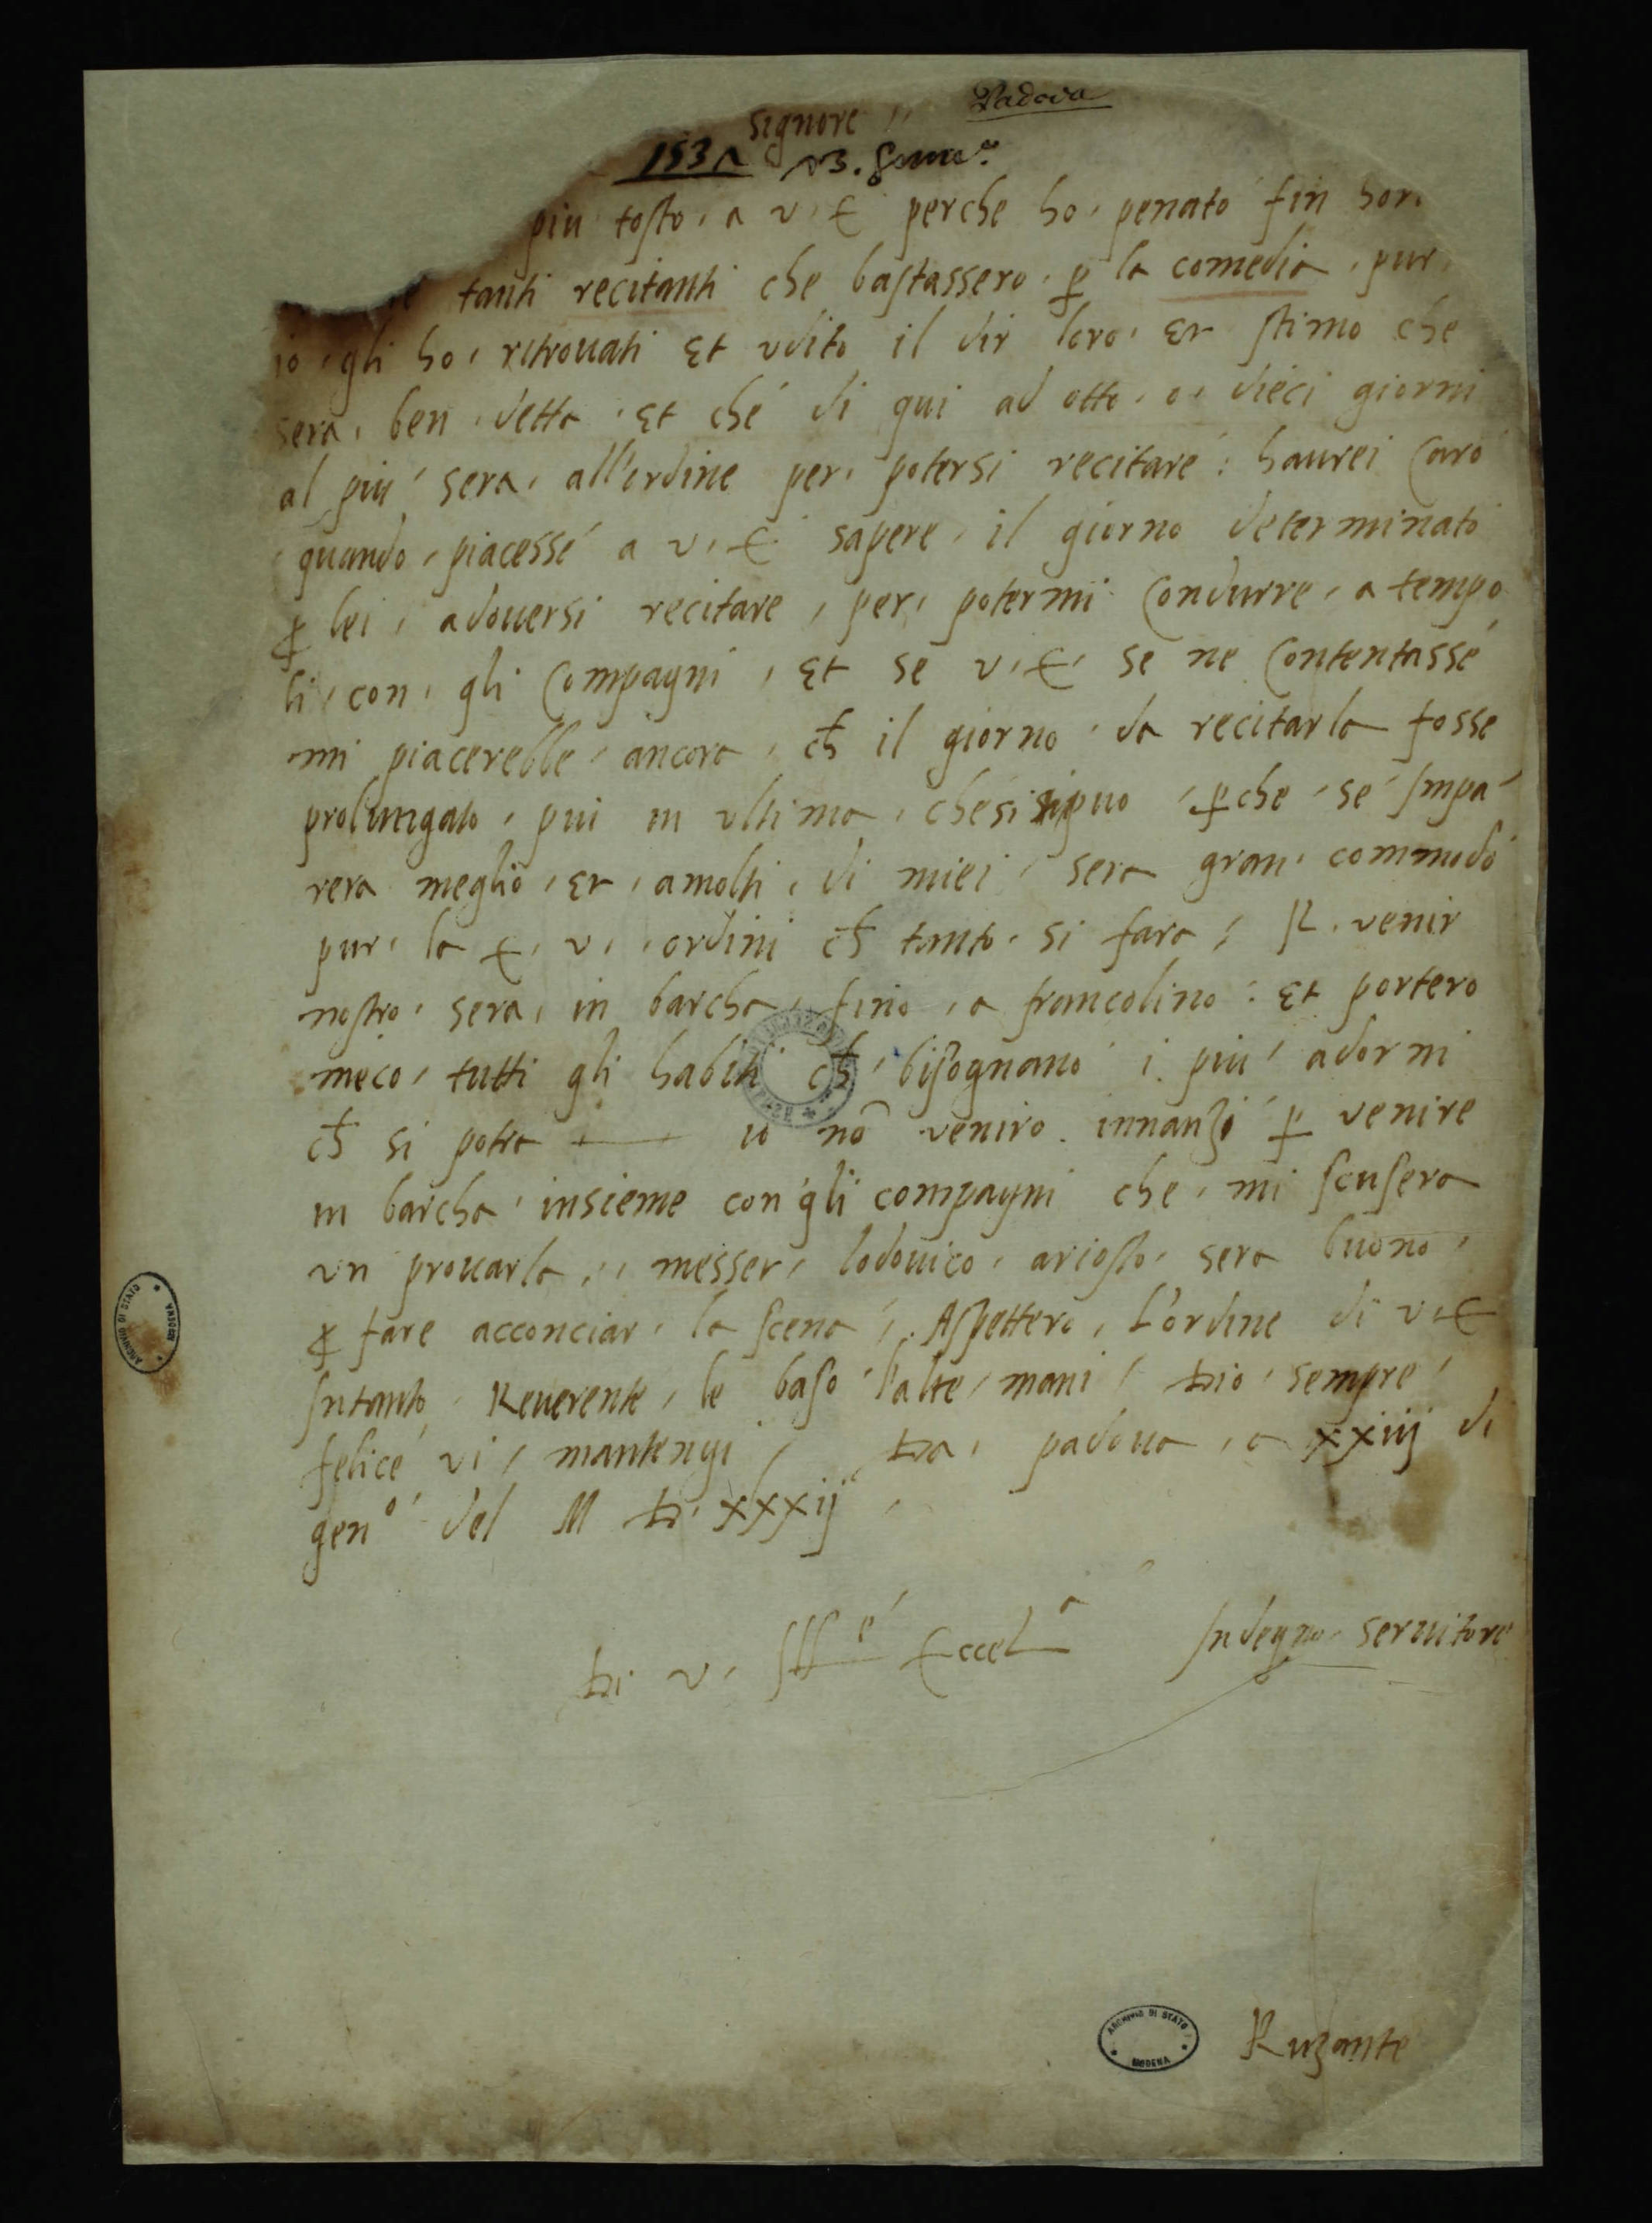 Padova
Signore
1531 23. Genna.o
piu tosto, a v. E perche ho. penato fin hor
tanti recitanti che bastassero. ꝑ la comedia. pur
io, gli ho, ritrouati Et vdito il dir loro, Et stimo che
sera, ben detta. Et ché di qui ad otto, o, dieci giorni
al piu sera, all'ordine per, potersi recitare: haurei Caro
quando, piacessé a v, E sapere, il giorno determinato
ꝑ lei, adouersi recitare, per, potermi Condurre, a tempo
li, con, gli Compagni, Et se v, E, se ne Contentassé
mi piacerebbe, ancora, ch il giorno, da recitarla fosse
prolungato, piu in vltima, che si puo, ꝑche, se Impa
rera meglio, Et, amolti, di miei, sera gran, commodo
pur, la E, v,, ordini ch tanto, si fara, Il. venir
nostro, sera, in barcha, fino, a francolino: Et portero
meco, tutti gli habiti ch, bisognano i piu adorni
ch si potra — io nō veniro. innanzi ꝑ venire
in barcha, insieme con gli compagni che, mi scusera
vn prouarla,, messer, lodouico, ariosto, sera buono,
ꝑ fare acconciar, la scena,. Aspettero, L'ordine di v, E
Intanto, Reuerente, le baso l'alte, mani, Dio, sempre,
felicé vi, mantengi, Da, padoua, a xxiij di
genº del M D. xxxij,
Di v, Illᵉ Eccelᵃ Indegno seruitore
ARCHIVIO DI STATO
MODENA
ARCHIVIO DI STATO
MODENA
Ruzante